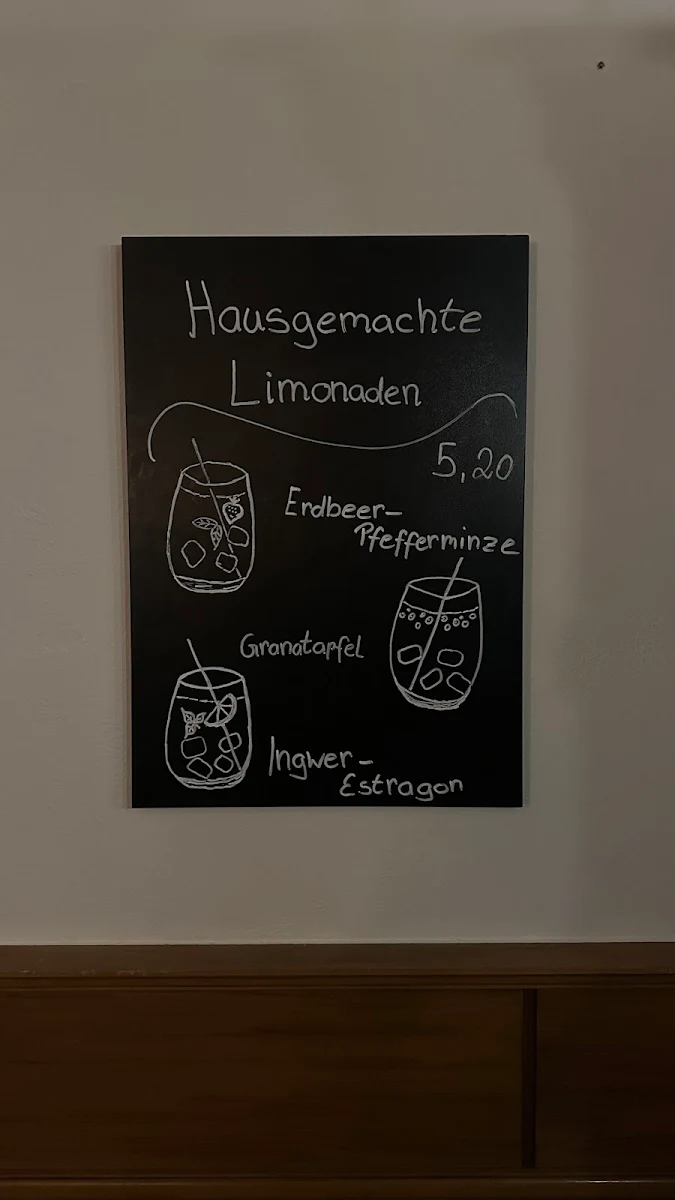 Hausgemachte
Limonaden
5,20
Erdbeer-
Pfefferminze
Granatapfel
Ingwer-
Estragon